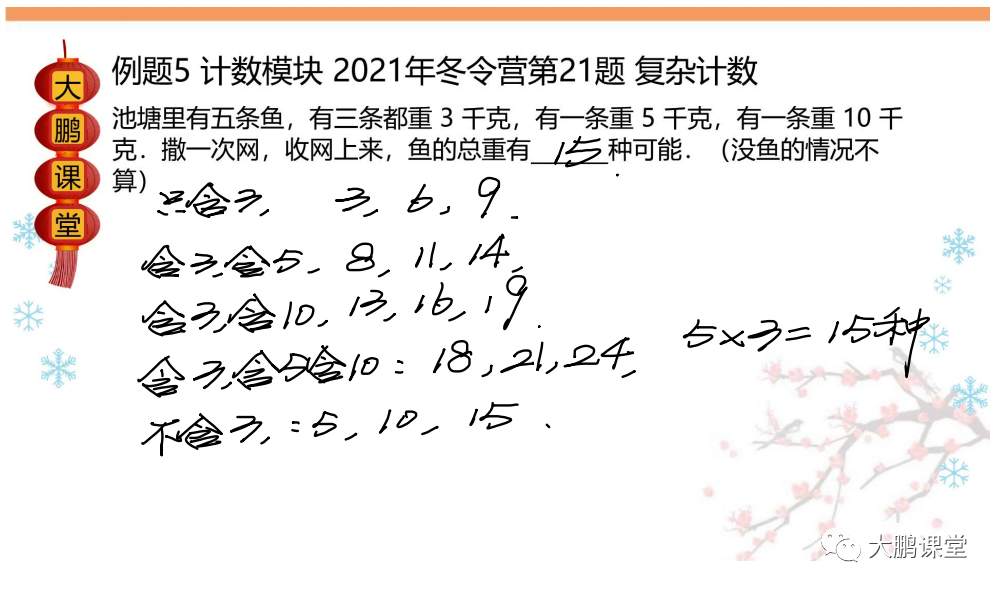 大鹏课堂
例题5 计数模块 2021年冬令营第21题 复杂计数
池塘里有五条鱼，有三条都重 3 千克，有一条重 5 千克，有一条重 10 千
克．撒一次网，收网上来，鱼的总重有 15 种可能．（没鱼的情况不
算）
只含3, 3, 6, 9.
含3,含5. 8, 11, 14,
含3,含10, 13, 16, 19.
含3,含5含10: 18, 21, 24,
5×3=15种
不含3,:5, 10, 15.
大鹏课堂